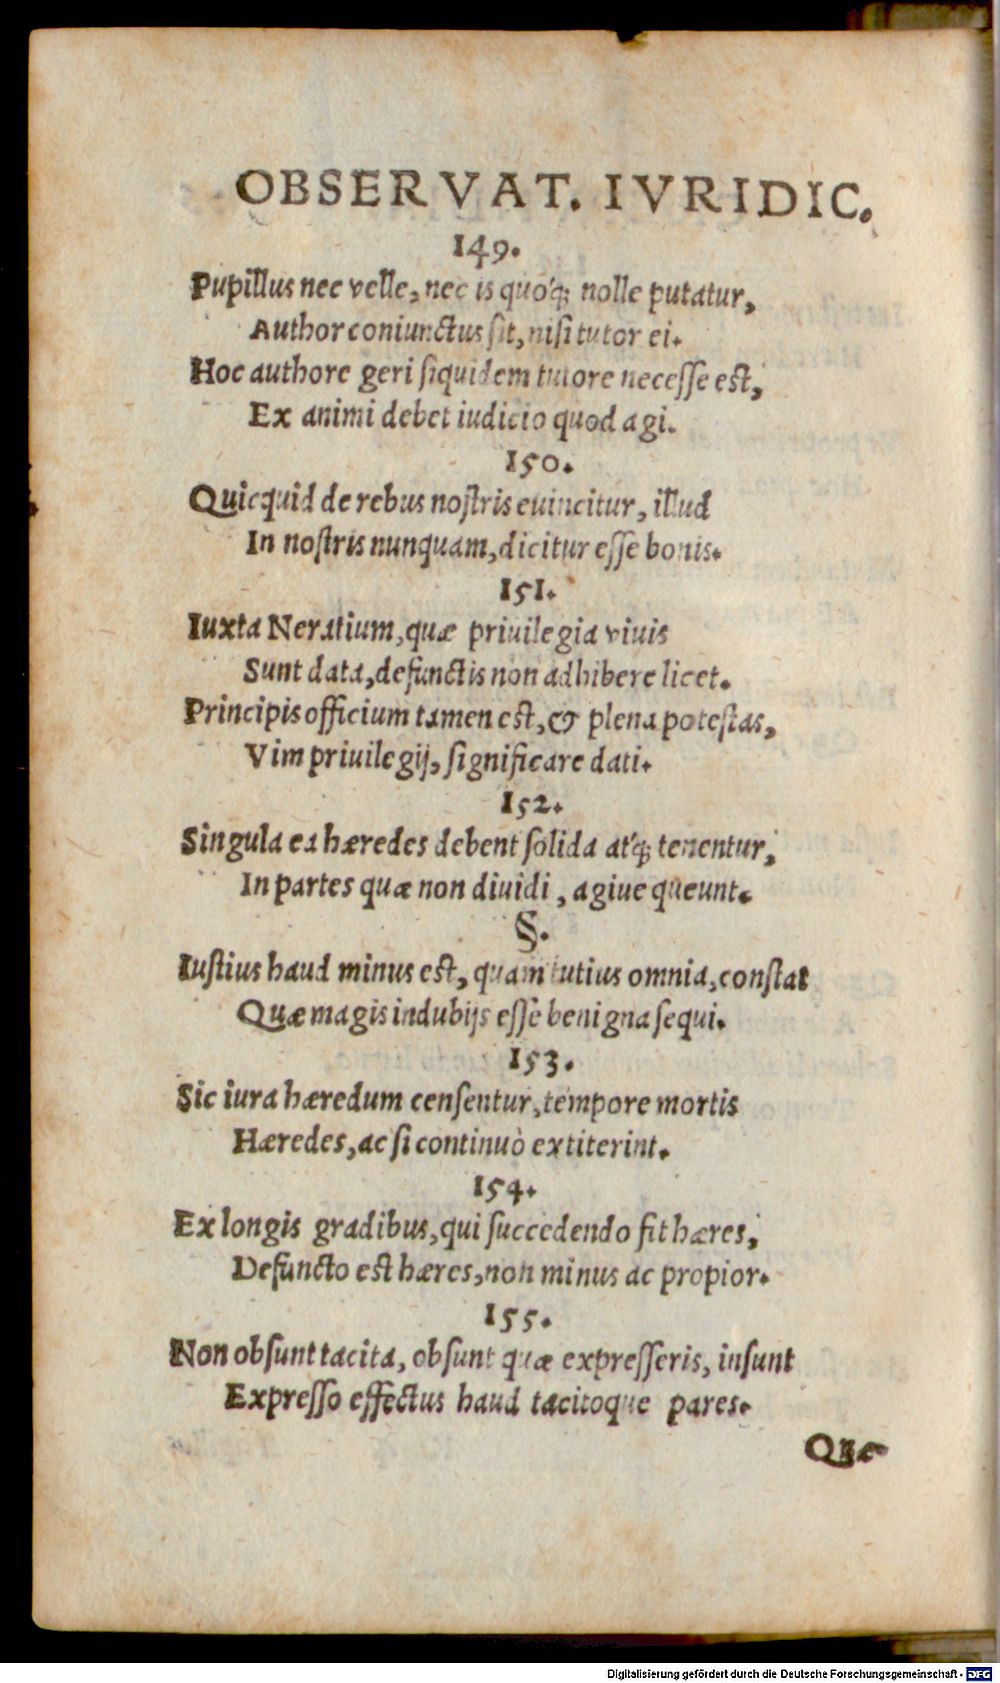 OBSERVAT. IVRIDIC.
149.
Pupillus nec velle, nec is quoq́; nolle putatur,
Author coniunctus sit, nisi tutor ei.
Hoc authore geri siquidem tutore necesse est,
Ex animi debet iudicio quod agi.
150.
Quicquid de rebus nostris euincitur, illud
In nostris nunquam, dicitur esse bonis.
151.
Iuxta Neratium, quæ priuilegia viuis
Sunt data, defunctis non adhibere licet.
Principis officium tamen est, & plena potestas,
Vim priuilegij, significare dati.
152.
Singula ea hæredes debent solida atq́; tenentur,
In partes quæ non diuidi, agiue queunt.
§.
Iustius haud minus est, quam tutius omnia, constat
Quæ magis in dubijs esse benigna sequi.
153.
Sic iura hæredum censentur, tempore mortis
Hæredes, ac si continuò extiterint.
154.
Ex longis gradibus, qui succedendo fit hæres,
Defuncto est hæres, non minus ac propior.
155.
Non obsunt tacita, obsunt quæ expresseris, insunt
Expresso effectus haud tacitoque pares.
Quæ
Digitalisierung gefördert durch die Deutsche Forschungsgemeinschaft - DFG